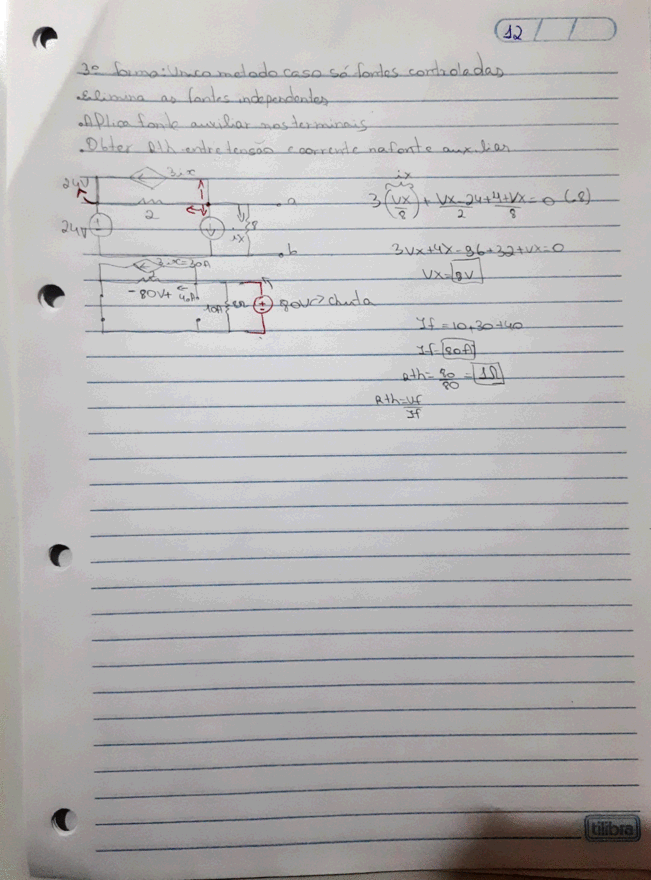 12 / /
3º forma: Único metodo caso só fontes controladas
.Elimina as fontes independentes
.Aplica fonte auxiliar nos terminais
.Obter Rth entre tensão e corrente na fonte auxiliar
24V 3ix
2 a
24V ix 8
b
3ix=30A
-80V+ 40A 10A 8Ω 80V→chuta
ix
3(Vx/8) + Vx-24/2 + 4 + Vx/8 = 0 (.8)
3Vx+4x-96+32+Vx=0
Vx=8V
If = 10+30+40
If=80A
Rth=80/80=1Ω
Rth=Vf/If
tilibra